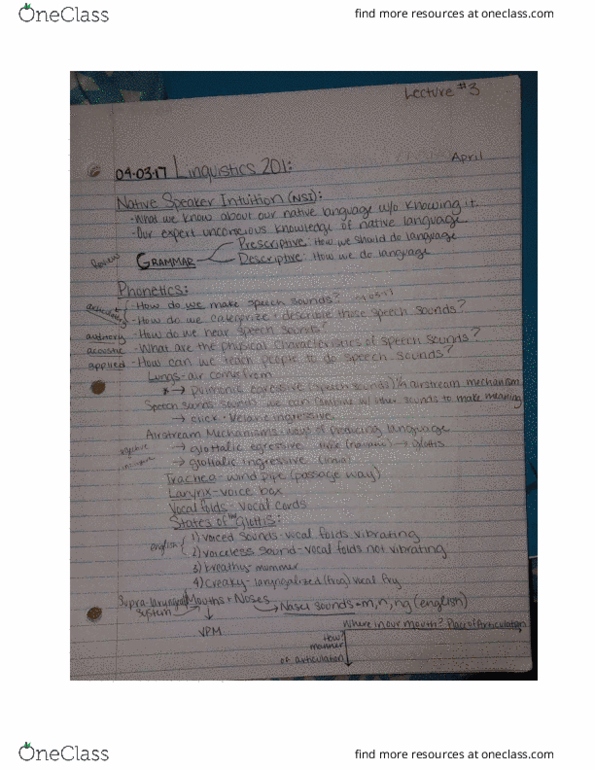 OneClass
find more resources at oneclass.com
Lecture #3
04.03.17 Linguistics 201:
April
Native Speaker Intuition (NSI):
- What we know about our native language w/o knowing it.
- Our expert unconscious knowledge of native language.
Prescriptive: How we should do language
Review
GRAMMAR
Descriptive: How we do language
Phonetics:
articulatory
- How do we make speech sounds?
- How do we categorize + describe those speech sounds?
auditory - How do we hear speech sounds?
acoustic - What are the physical characteristics of speech sounds?
applied - How can we teach people to do speech sounds?
Lungs - air come from
* → pulmonic (speech sounds) airstream mechanism
Speech sounds we can combine w/ other sounds to make meaning
→ click - velaric ingressive
Airstream Mechanisms: ways of producing language
→ glottalic egressive → glottis
→ glottalic ingressive
Trachea - wind pipe (passage way)
Larynx - voice box
Vocal folds - vocal cords
States of the Glottis:
english
1) voiced sounds - vocal folds vibrating
2) voiceless sound - vocal folds not vibrating
3) breathy - murmur
4) Creaky - laryngealized vocal fry
Supra-laryngeal system
Mouths + Noses
Nasal sounds = m, n, ng (english)
VPM
Where in our mouth? Place of Articulation
How? manner
of articulation
OneClass
find more resources at oneclass.com